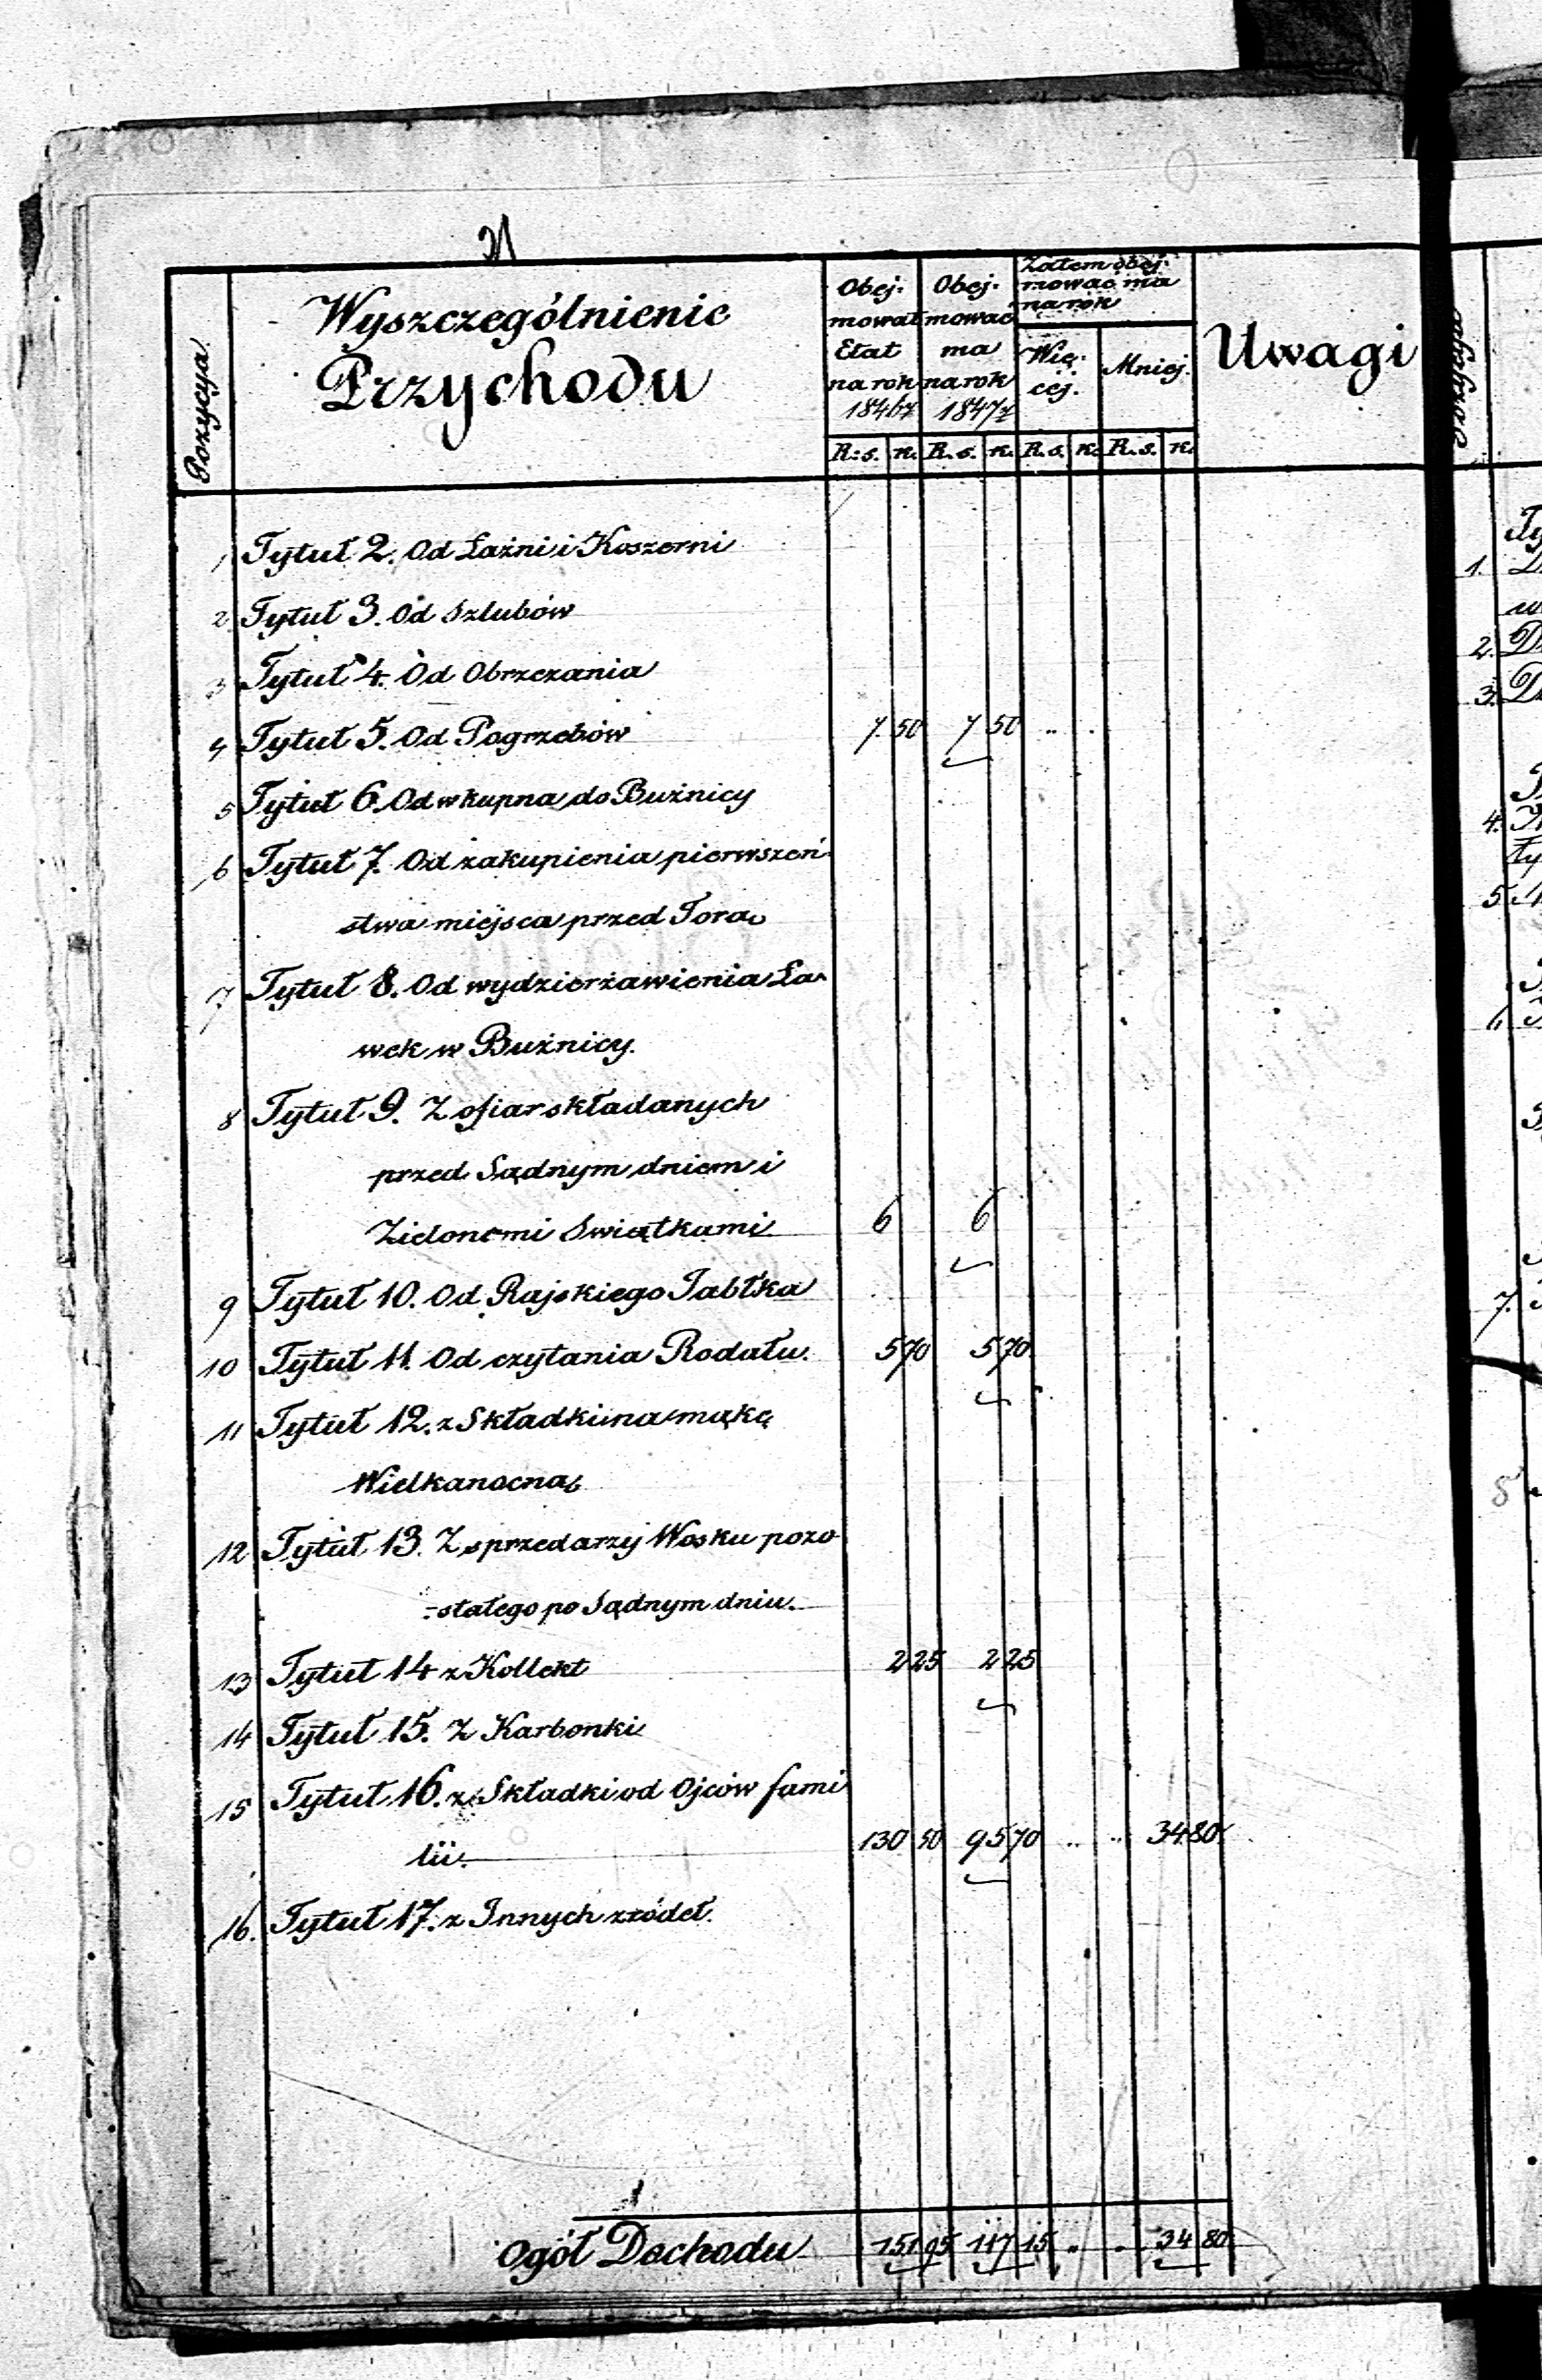 21
Pozycya
Wyszczególnienie
Przychodu
Obej-
mował
Etat
na rok
1846 r
Obej-
mować
ma
na rok
1847 r
Zatem obej-
mować ma
na rok
Wię-
cej.
Mniej.
Uwagi
R: s. K. R. s. K. R. s. K. R. s. K.
1 Tytuł 2. Od Łaźni i Koszerni
2 Tytuł 3. Od Szlubów
3 Tytuł 4. Od Obrzezania
4 Tytuł 5. Od Pogrzebów 7 50 7 50 .. .
5 Tytuł 6. Od wkupna do Bużnicy
6 Tytuł 7. Od zakupienia pierwszeń-
stwa miejsca przed Torą
7 Tytuł 8. Od wydzierżawienia Ła-
wek w Bużnicy.
8 Tytuł 9. Z ofiar składanych
przed Sądnym dniem i
Zielonemi Swiątkami 6 6
9 Tytuł 10. Od Rajskiego Jabłka
10 Tytuł 11. Od czytania Rodału. 5 70 5 70
11 Tytuł 12. z Składki na mąkę
Wielkanocną
12 Tytuł 13. Z sprzedarzy Wosku pozo-
-stałego po Sądnym dniu.
13 Tytuł 14 z Kollekt 2 25 2 25
14 Tytuł 15. Z Karbonki
15 Tytuł 16. z Składki od Ojców fami
lii. 130 50 95 70 .. .. 34 80
16. Tytuł 17. z Innych zródeł.
Ogół Dochodu 151 95 117 15 .. .. 34 80
Pozycya
1.
2.
3.
4.
5
6
7.
8